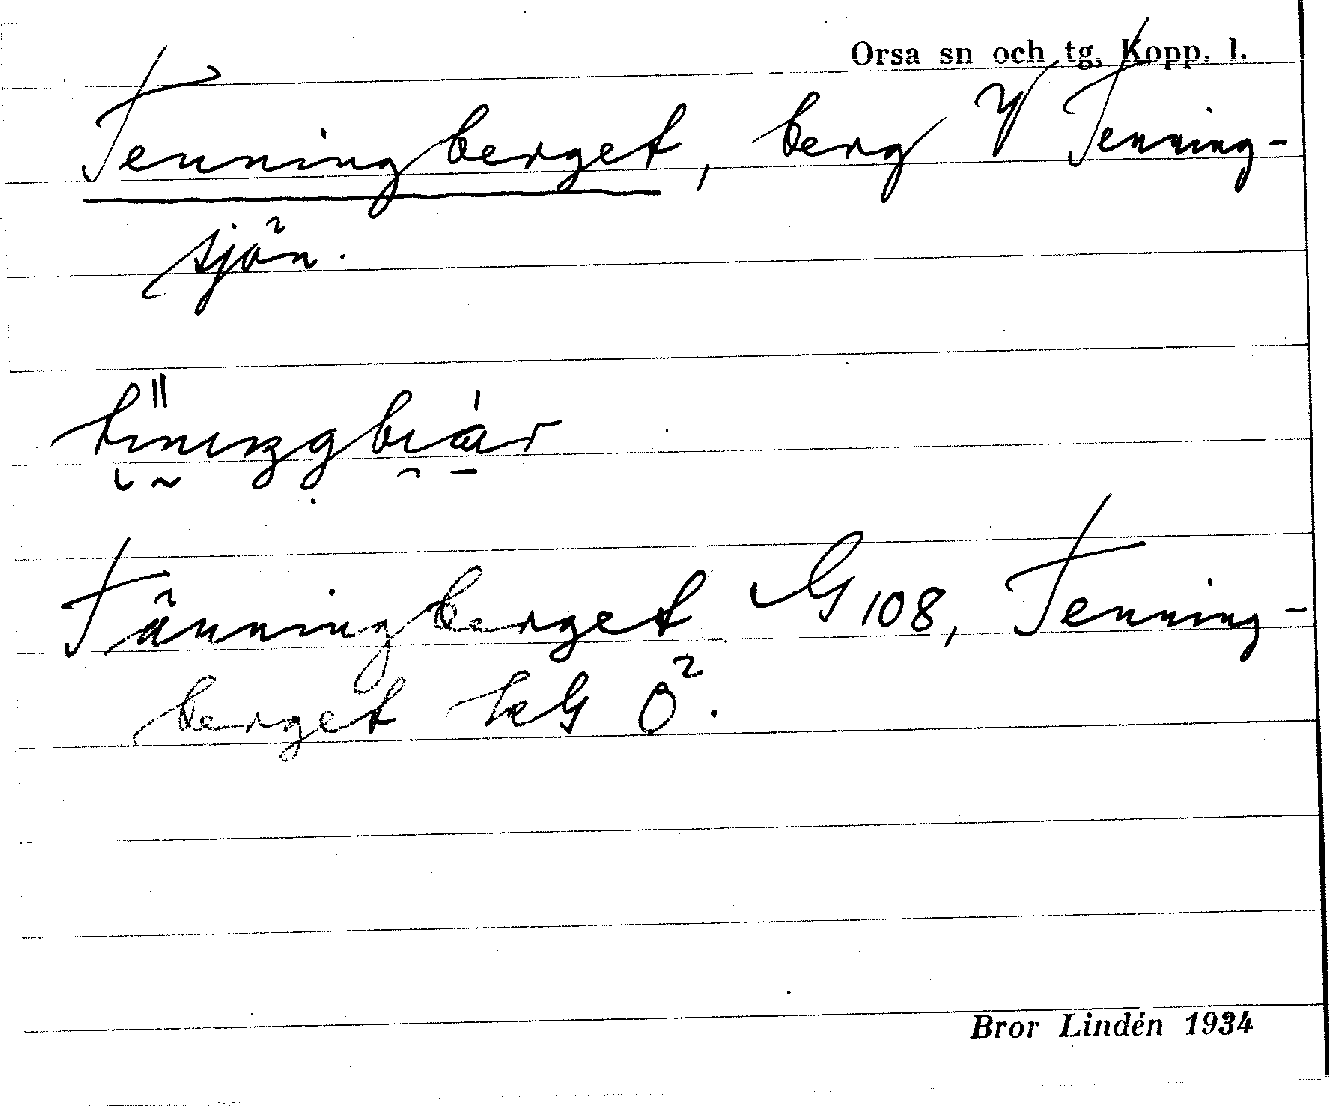 Orsa sn och tg, Kopp. l.
Tenningberget, berg V Tenning-
sjön.
Tänningberget G 108, Tenning-
berget hkG Ö².
Bror Lindén 1934